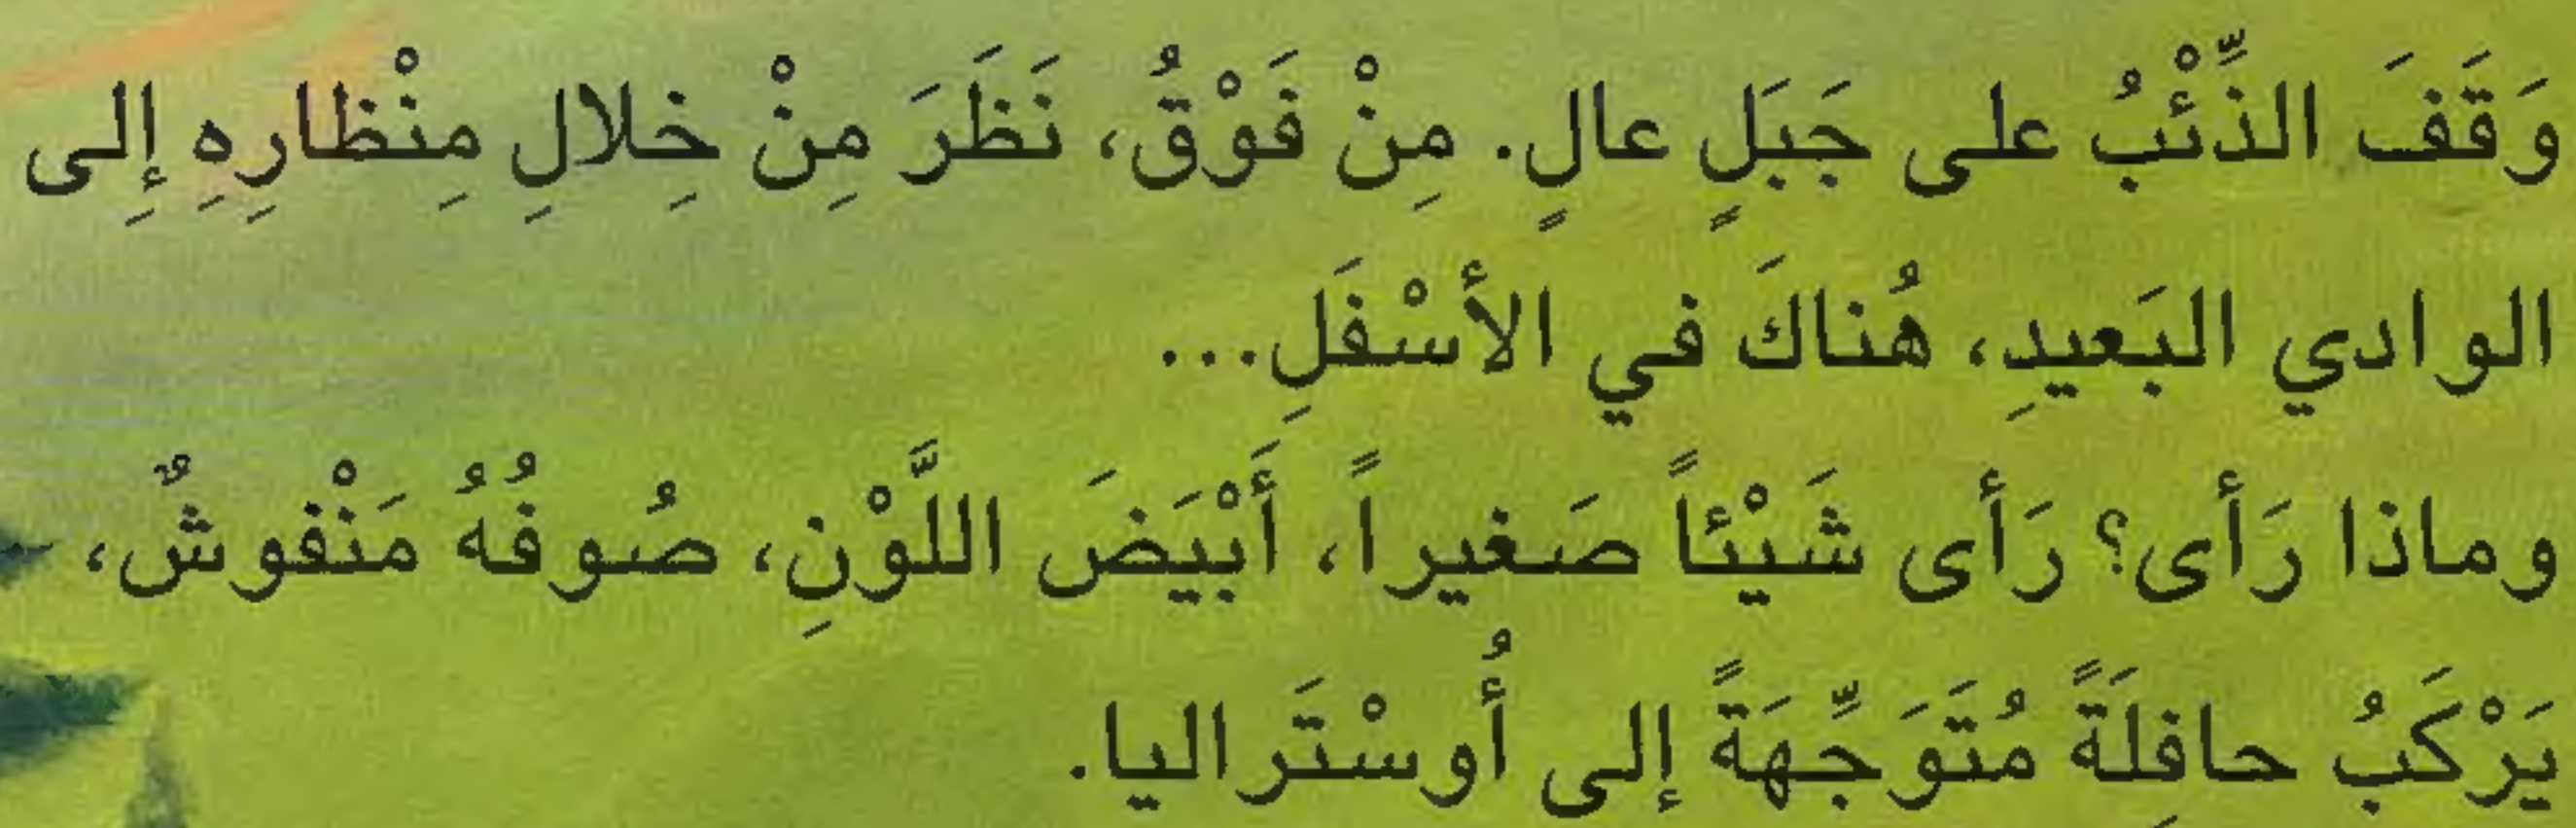 وَقَفَ الذِّئْبُ على جَبَلٍ عالٍ. مِنْ فَوْقُ، نَظَرَ مِنْ خِلالِ مِنْظارِهِ إِلى
الوادي البَعيدِ، هُناكَ في الأَسْفَلِ...
وماذا رَأَى؟ رَأَى شَيْئاً صَغيراً، أَبْيَضَ اللَّوْنِ، صُوفُهُ مَنْفوشٌ،
يَرْكَبُ حافِلَةً مُتَوَجِّهَةً إلى أُوسْتَراليا.